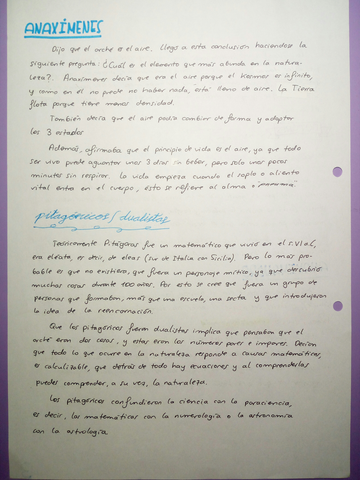 ANAXÍMENES
Dijo que el arché es el aire. Llegó a esta conclusión haciéndose la
siguiente pregunta: ¿Cuál es el elemento que más abunda en la natura-
leza?. Anaxímenes decía que era el aire porque el Kosmos es infinito,
y como en él no puede no haber nada, está lleno de aire. La Tierra
flota porque tiene menos densidad.
También decía que el aire podía cambiar de forma y adoptar
los 3 estados
Además, afirmaba que el principio de vida es el aire, ya que todo
ser vivo puede aguantar unos 3 días sin beber, pero solo unos pocos
minutos sin respirar. La vida empieza cuando el soplo o aliento
vital entra en el cuerpo, esto se refiere al alma o "pneuma"
pitagóricos/dualistas
Teóricamente Pitágoras fue un matemático que vivió en el s.VI a.C,
era eleata, es decir, de elea (sur de Italia con Sicilia). Pero lo más pro-
bable es que no existiera, que fuera un personaje mítico, ya que descubrió
muchas cosas durante 100 años. Por esto se cree que fuera un grupo de
personas que formaban, más que una escuela, una secta y que introdujeron
la idea de la reencarnación.
Que los pitagóricos fueran dualistas implica que pensaban que el
arché eran dos cosas, y estas eran los números pares e impares. Decían
que todo lo que ocurre en la naturaleza responde a causas matemáticas,
es calculizable, que detrás de todo hay ecuaciones y al comprenderlas
puedes comprender, a su vez, la naturaleza.
Los pitagóricos confundieron la ciencia con la paraciencia,
es decir, las matemáticas con la numerología o la astronomía
con la astrología.